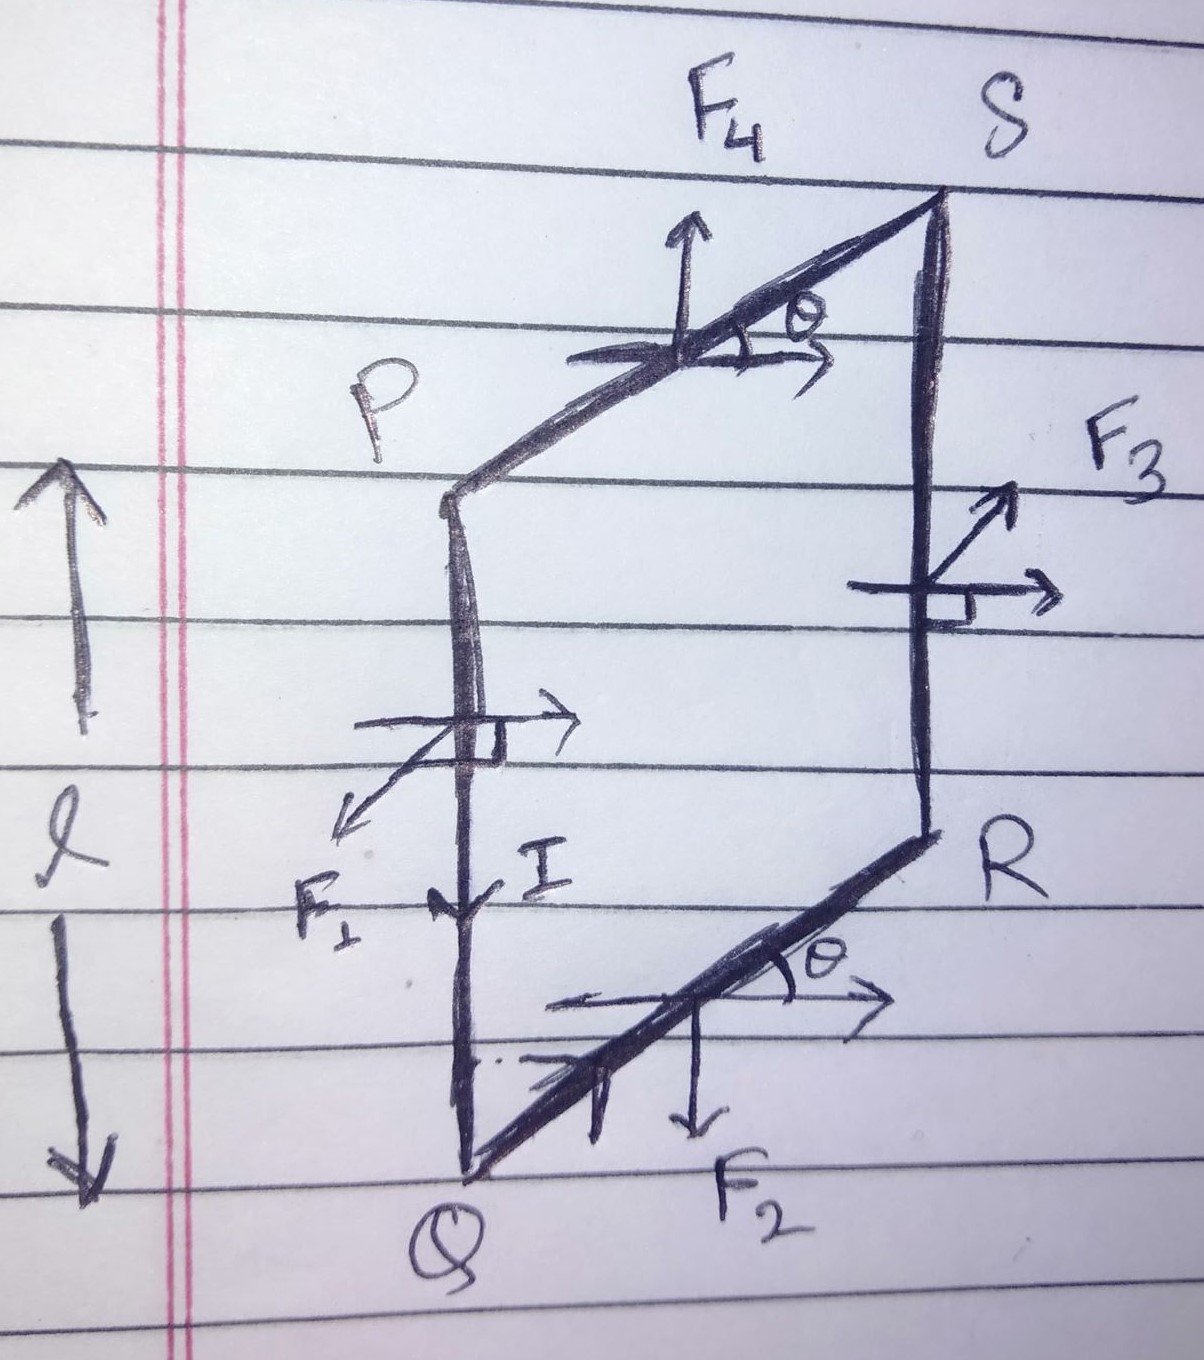 F4
S
θ
P
F3
l
I
F1
R
θ
F2
Q